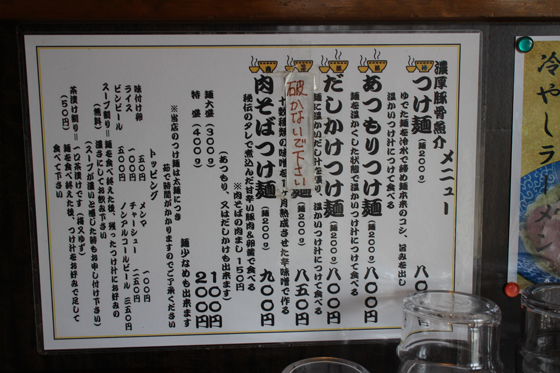 メニュー
濃厚豚骨魚介
つけ麺(麺200g) 八〇
ゆでた麺を冷水で締め麺本来のコシ、旨みを出し
温かいつけ汁につけて食べる
あつもりつけ麺(麺200g) 八〇〇円
麺を温かくした状態で温かいつけ汁につけて食べる
だしかけつけ麺(麺200g) 八〇〇円
麺に温かいだし汁を張り、温かいつけ汁につけて食べる
麺(麺200g) 八五〇円
破かないで下さい
十数種類の味噌を1ヶ月熟成させた辛味噌で作る
肉そばつけ麺(麺200g) 九〇〇円
秘伝のタレで煮込んだ甘辛い豚肉&卵黄で食べる
※肉そばの肉まし150円
(あつもり、又はだしかけも出来ます)
麺大盛(300g) 100円
特盛(400g) 200円
麺少なめも出来ます
※当店のつけ麺は太麺につき
茹で時間がかかりますのでご了承ください
トッピング
味付け卵 一〇五円
メンマ 一〇〇円
ライス 一五〇円
チャーシュー 二五〇円
ビンビール 五〇〇円
ノンアルコールビール 三五〇円
スープ割り=麺を食べ終えた後、残ったつけ汁にお好みの
(無料) 濃さにしてお飲み下さい
(スープが濃いと感じた時もお申し付け下さい)
茶漬け割り=一口茶漬けです(梅又ゆず)
(50円) 麺を食べ終えた後、つけ汁をお好みで足して
食べて下さい
冷やしラ